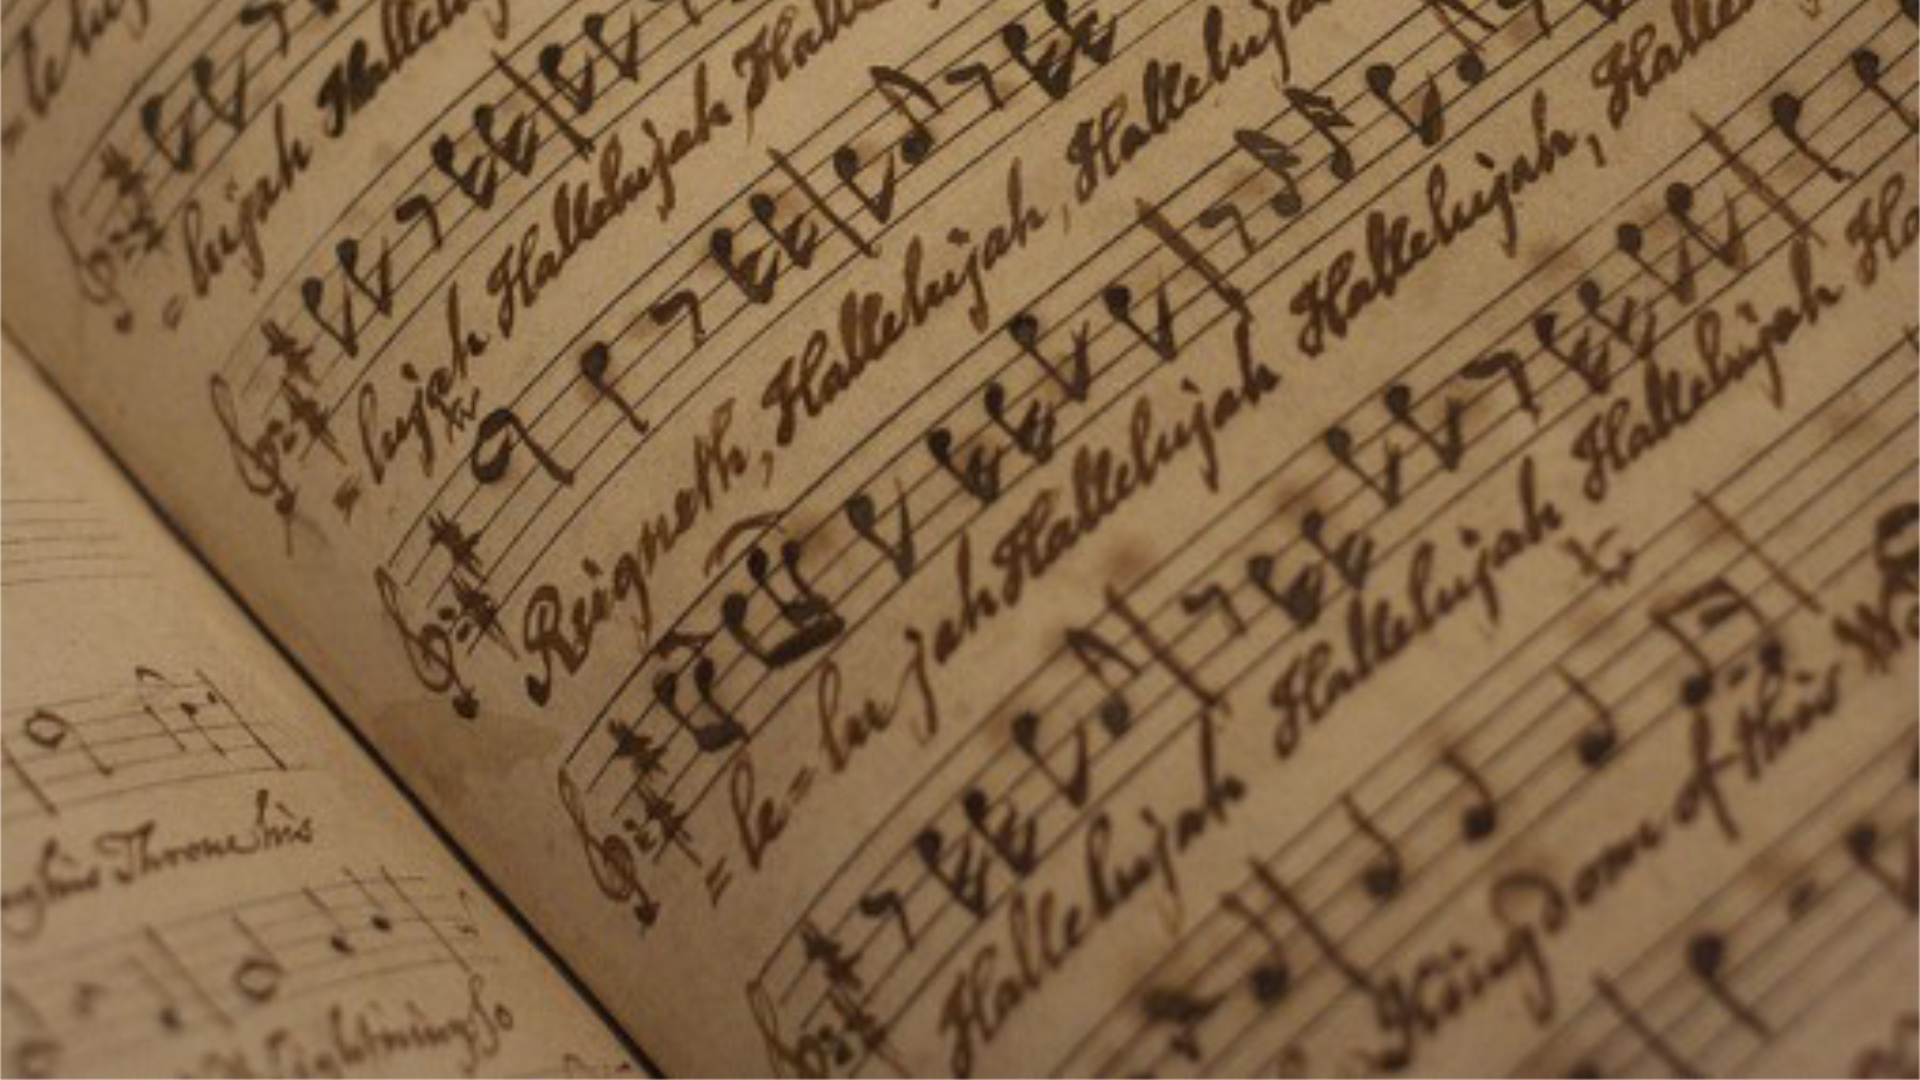 = lujah Hallelu
= lujah Hallelujah Halle
Reigneth, Hallelujah, Hallelujah
= le = lu jah Hallelujah Hallelujah, Halle
Hallelujah Hallelujah Hallelujah
Kingdome of this
his Throne his
Lightning so